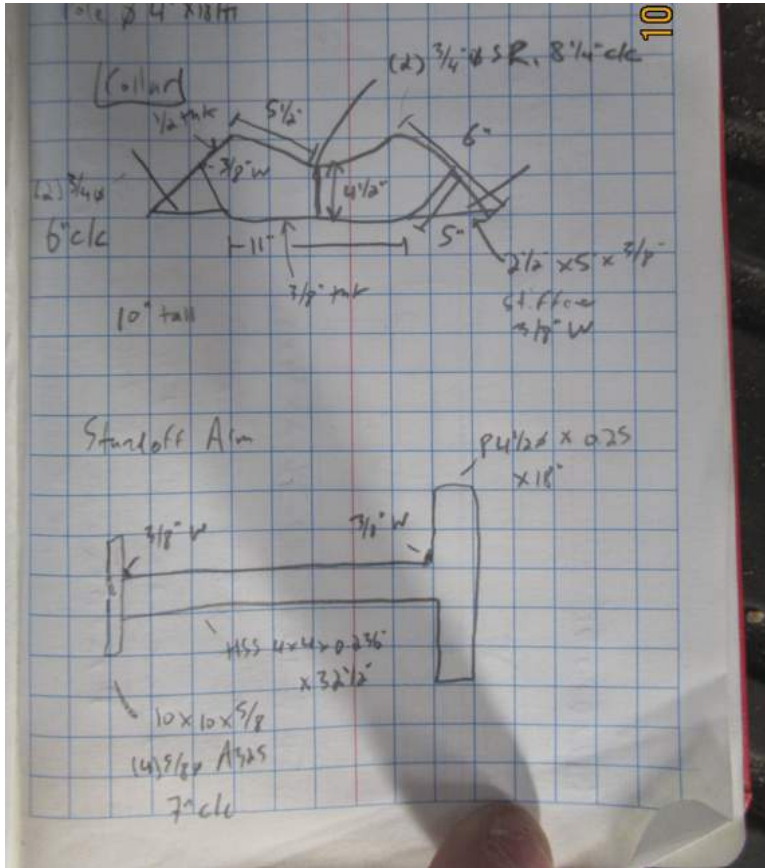 Pole ø 4" x 18ft
10
Collar
(2) 3/4" ø S R, 8 1/4" c/c
1/2 thk
5 1/2"
6"
3/8" W
4 1/2"
(2) 3/4 ø
6" c/c
11"
5"
3/8" thk
2 1/2" x 5" x 3/8"
stiffener
3/8" W
10" tall
Standoff Arm
P4 1/2 ø x 0.25
x 18"
3/8" W
3/8" W
HSS 4x4x0.236"
x 32 1/2"
10 x 10 x 5/8
(4) 5/8 ø A325
7" c/c